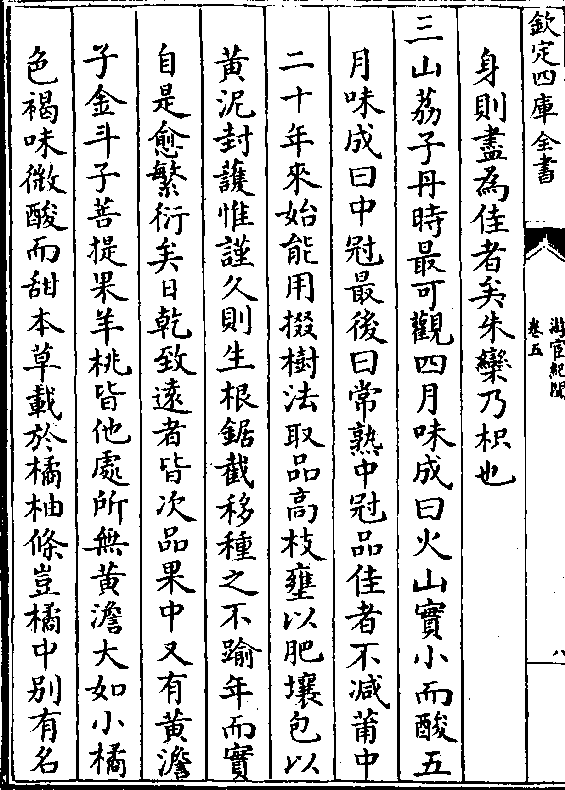 欽定四庫全書
游宦紀聞
卷五
八
身則盡為佳者矣朱欒乃枳也
三山荔子丹時最可觀四月味成曰火山實小而酸五
月味成曰中冠最後曰常熟中冠品佳者不減莆中
二十年來始能用掇樹法取品高枝壅以肥壤包以
黃泥封護惟謹久則生根鋸截移種之不踰年而實
自是愈繁衍矣日乾致遠者皆次品果中又有黃澹
子金斗子菩提果羊桃皆他處所無黃澹大如小橘
色褐味微酸而甜本草載於橘柚條豈橘中別有名